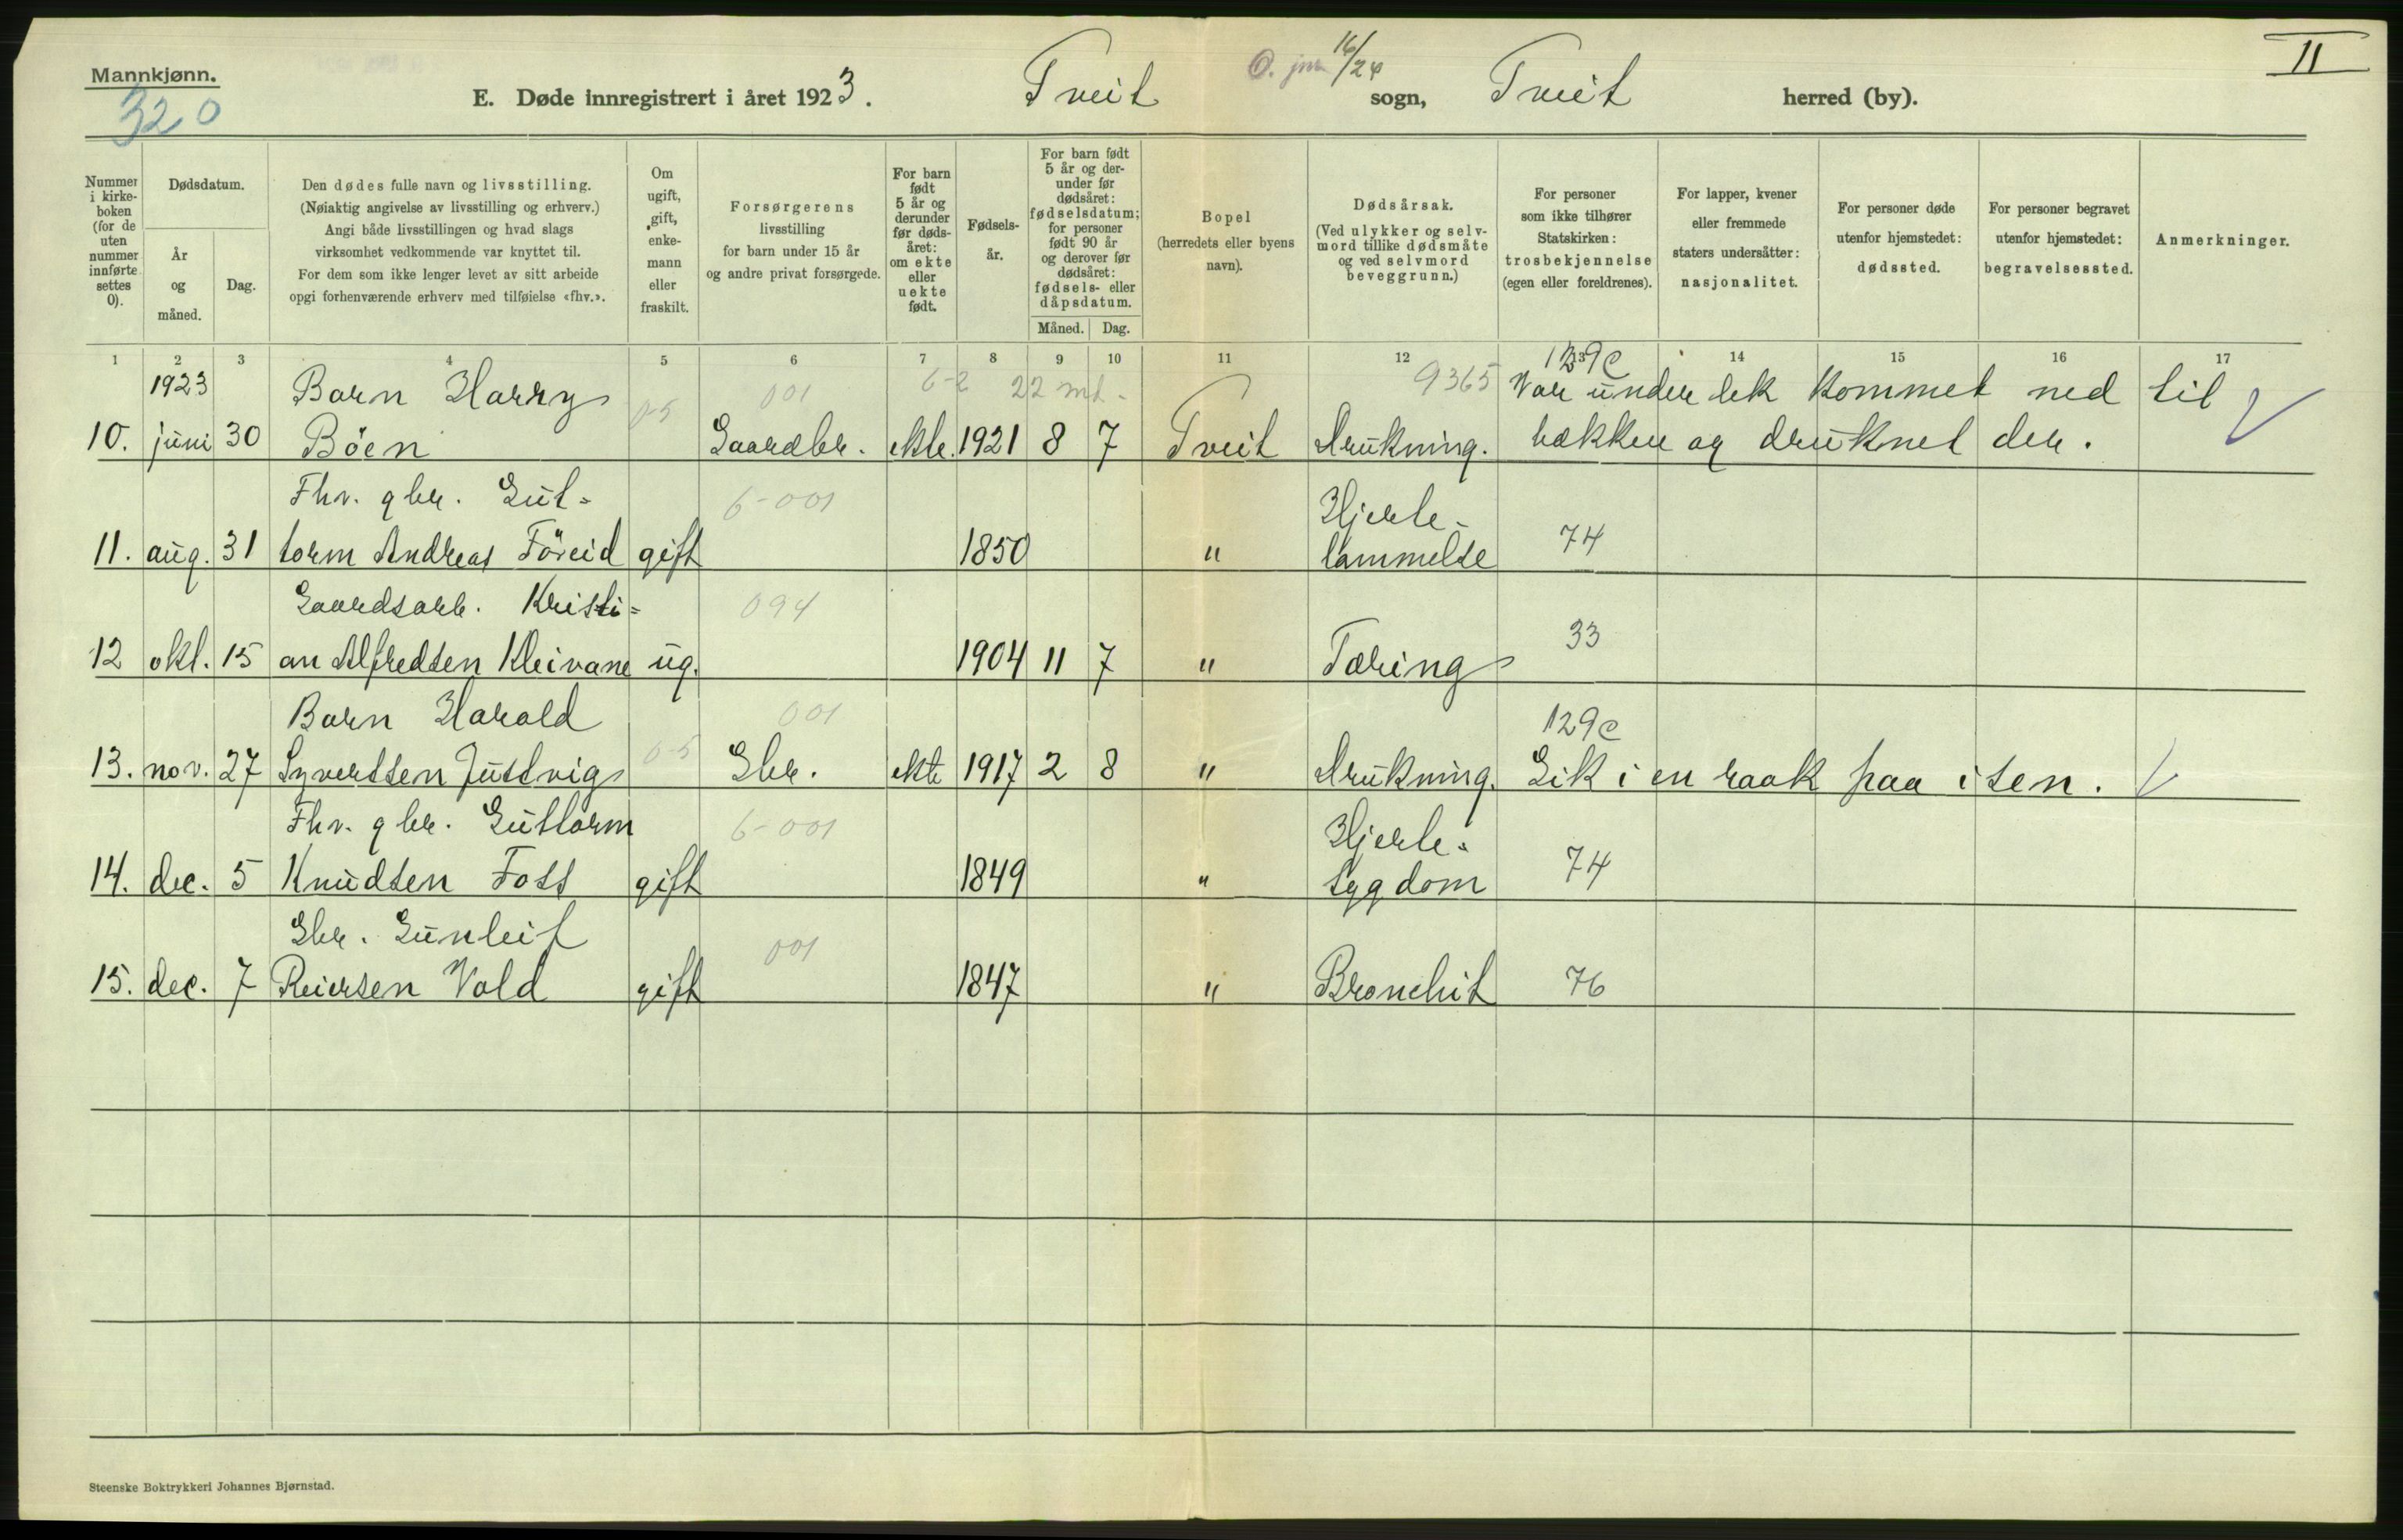 Mannkjønn.
320
E. Døde innregistrert i året 1923.
Tveit sogn, Tveit herred (by).
16/24
II
Nummer i kirke-boken (for de uten nummer innførte settes 0).
Dødsdatum.
År og måned.
Dag.
Den dødes fulle navn og livsstilling.
(Nøiaktig angivelse av livsstilling og erhverv.)
Angi både livsstillingen og hvad slags
virksomhet vedkommende var knyttet til.
For dem som ikke lenger levet av sitt arbeide
opgi forhenværende erhverv med tilføielse «fhv.».
Om ugift, gift, enke-mann eller fraskilt.
Forsørgerens
livsstilling
for barn under 15 år
og andre privat forsørgede.
For barn født 5 år og derunder før døds-året: om ekte eller uekte født.
Fødsels-år.
For barn født 5 år og der-under før dødsåret: fødselsdatum; for personer født 90 år og derover før dødsåret: fødsels- eller dåpsdatum.
Måned. Dag.
Bopel
(herredets eller byens
navn).
Dødsårsak.
(Ved ulykker og selv-
mord tillike dødsmåte
og ved selvmord
beveggrunn.)
For personer
som ikke tilhører
Statskirken:
trosbekjennelse
(egen eller foreldrenes).
For lapper, kvener
eller fremmede
staters undersåtter:
nasjonalitet.
For personer døde
utenfor hjemstedet:
dødssted.
For personer begravet
utenfor hjemstedet:
begravelsessted.
Anmerkninger.
1 2 3 4 5 6 7 8 9 10 11 12 13 14 15 16 17
1923 Barn Harry 0-5 001 6-2 22 mt. 9365 129c Var under lek kommet ned til
10. juni 30 Böen Gaardbr. ekte. 1921 8 7 Tveit Drukning. bækken og druknet der.
Fhv. gbr. Gut= 6-001 Hjerte-
11. aug. 31 torm Andreas Föreid gift 1850 " lammelse 74
Gaardsarb. Kristi= 094
12 okt. 15 an Alfredsen Kleivane ug. 1904 11 7 " Tæring 33
Barn Harald 001 129c
13. nov. 27 Syvertsen Justvig 0-5 Gbr. ekte 1917 2 8 " Drukning. Gik i en raak paa isen.
Fhv. gbr. Guttorm 6-001 Hjerte-
14. dec. 5 Knudsen Foss gift 1849 " sygdom 74
Gbr. Gunleif 001
15. dec. 7 Reiersen Vold gift 1847 " Bronchit 76
Steenske Boktrykkeri Johannes Bjørnstad.